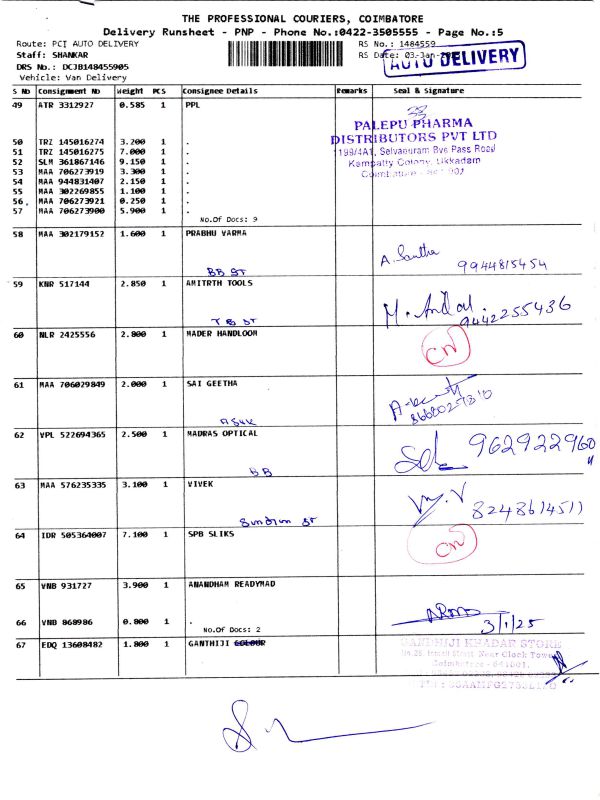 THE PROFESSIONAL COURIERS, COIMBATORE
Delivery Runsheet - PNP - Phone No.:0422-3505555 - Page No.:5
Route: PCI AUTO DELIVERY RS No.: 1484559
Staff: SHANKAR RS Date: 03-Jan-
DRS No.: DCJB148455905 AUTO DELIVERY
Vehicle: Van Delivery
S No Consignment No Weight PCS Consignee Details Remarks Seal & Signature
49 ATR 3312927 0.585 1 PPL
PALEPU PHARMA
DISTRIBUTORS PVT LTD
199/4A1, Selvapuram Bye Pass Road
Kempatty Colony, Ukkadam
Coimbatore
50 TRZ 145016274 3.200 1 .
51 TRZ 145016275 7.000 1 .
52 SLM 361867146 9.150 1 .
53 MAA 706273919 3.300 1 .
54 MAA 944831407 2.150 1 .
55 MAA 302269855 1.100 1 .
56 MAA 706273921 0.250 1 .
57 MAA 706273900 5.900 1 .
No.Of Docs: 9
58 MAA 302179152 1.600 1 PRABHU VARMA
A. Santha 9944815454
BB ST
59 KNR 517144 2.850 1 AMITRTH TOOLS
9442255436
T B ST
60 NLR 2425556 2.800 1 MADER HANDLOOM
CN
61 MAA 706029849 2.000 1 SAI GEETHA
62 VPL 522694365 2.500 1 MADRAS OPTICAL
962922960
BB
63 MAA 576235335 3.100 1 VIVEK
8248614511
64 IDR 505364007 7.100 1 SPB SLIKS
CN
65 VNB 931727 3.900 1 ANANDHAM READYMAD
66 VNB 868986 0.800 1 .
3/1/25
No.Of Docs: 2
67 EDQ 13608482 1.800 1 GANTHIJI COLOUR
GANDHIJI KHADAR STORE
Near Clock Tower
Coimbatore - 641001.